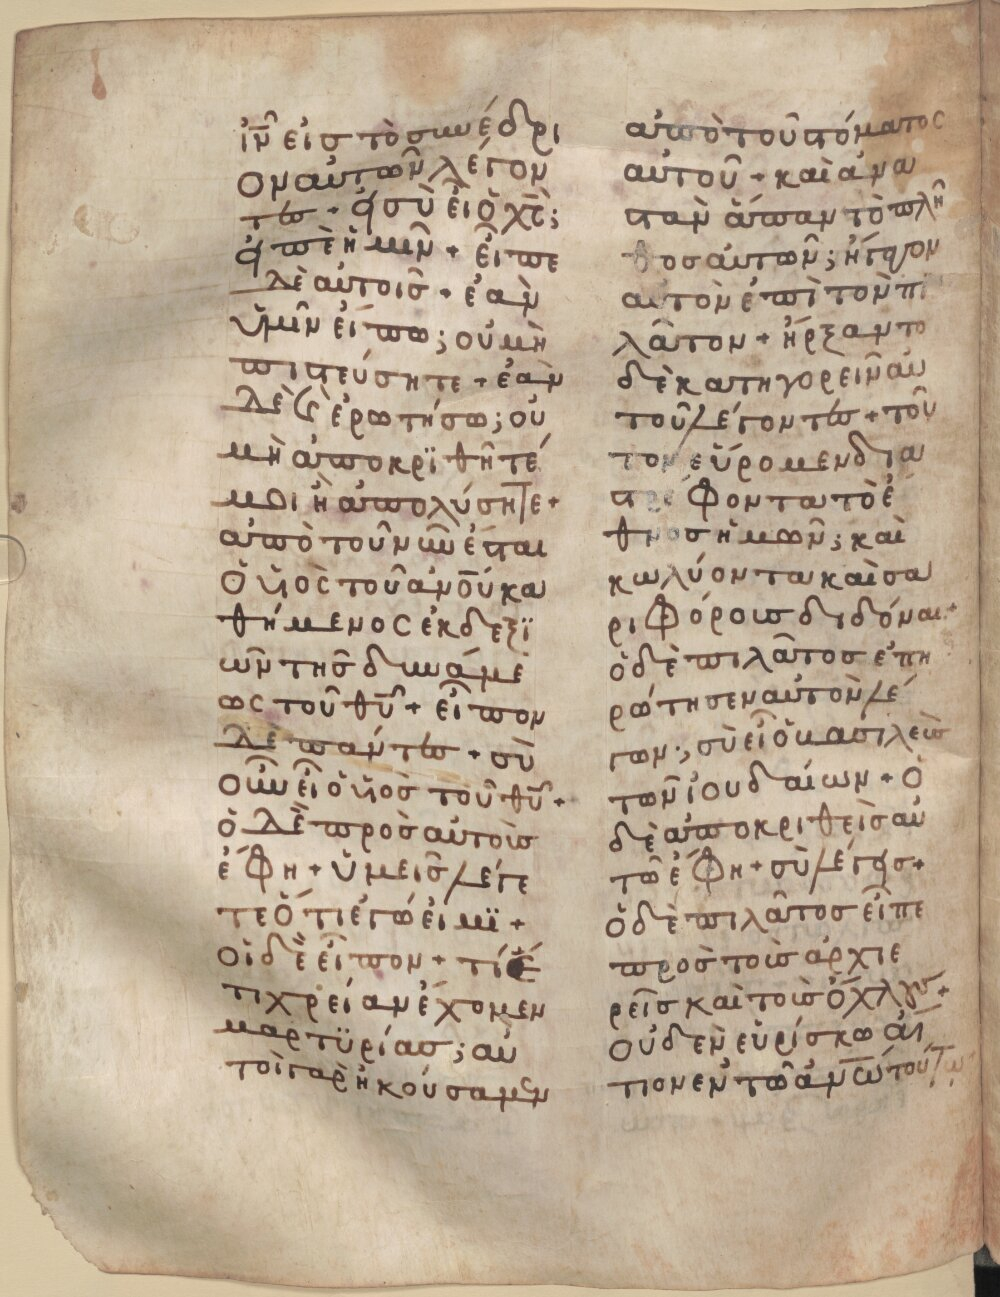 ἰν̅ εἰσ τὸ συνέδρι
ον αὐτῶν λέγον
τεσ + εἰ σὺ εἶ ὁ χ̅σ̅;
εἰπὲ ἡμῖν + εἶπε
δὲ αὐτοῖσ + ἐὰν
ὑμῖν εἴπω; οὐ μὴ
πιστεύσητε + ἐὰν
δὲ καὶ ἐρωτήσω; οὐ
μὴ ἀποκρϊθῆτέ
μοι ἢ ἀπολύσητε +
ἀπὸ τοῦ νῦν ἔσται
ὁ υἱὸς τοῦ ἀν̅ο̅υ̅ κα
θήμενος ἐκ δεξϊ
ῶν τῆσ δυνάμε
ως τοῦ θ̅υ̅ + εἶπον
δὲ πάντεσ + σὺ
οὖν εἶ ὁ υἱὸσ τοῦ θ̅υ̅ +
ὁ δὲ πρὸσ αὐτοὺσ
ἔφη + ὑμεῖσ λέγε
τε ὅτι ἐγώ εἰμϊ +
οἱ δὲ εἶπον + τί ἔ
τι χρείαν ἔχομεν
μαρτϋρίασ; αὐ
τοὶ γὰρ ἠκούσαμεν
ἀπὸ τοῦ στόματος
αὐτοῦ + καὶ ἀνα
στὰν ἅπαν τὸ πλῆ
θοσ αὐτῶν; ἤγαγον
αὐτὸν ἐπὶ τὸν πι
λᾶτον + ἤρξαντο
δὲ κατηγορεῖν αὐ
τοῦ λέγοντεσ + τοῦ
τον εὕρομεν δια
στρέφοντα τὸ ἔ
θνοσ ἡμῶν; καὶ
κωλύοντα καίσα
ρι φόρουσ διδόναι +
ὁ δὲ πιλᾶτοσ ἐπη
ρώτησεν αὐτὸν λέ
γων; σὺ εἶ ὁ βασιλεὺσ
τῶν ἰουδαίων + ὁ
δὲ ἀποκριθεὶσ αὐ
τῶ ἔφη + σὺ λέγεισ +
ὁ δὲ πιλᾶτοσ εἶπε
πρὸσ τοὺσ ἀρχιε
ρεῖσ καὶ τοὺσ ὄχλουσ +
οὐδὲν εὑρίσκω αἴ
τιον ἐν τῶ ἀν̅ω̅ τούτω